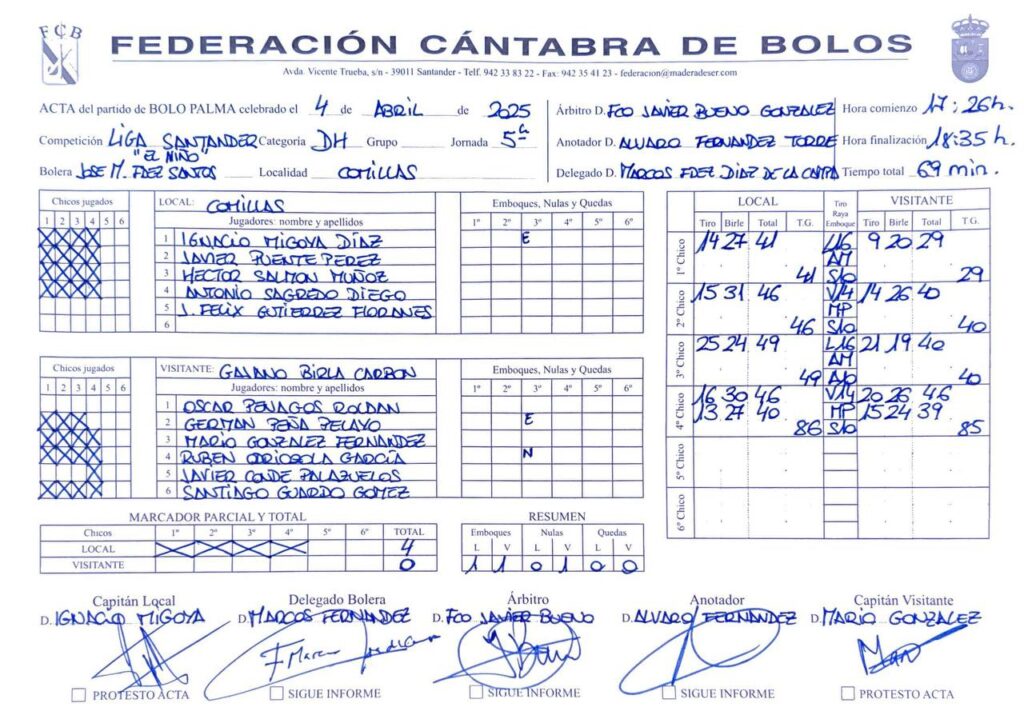 FCB
FEDERACIÓN CÁNTABRA DE BOLOS
Avda. Vicente Trueba, s/n - 39011 Santander - Telf. 942 33 83 22 - Fax: 942 35 41 23 - federacion@maderadeser.com
ACTA del partido de BOLO PALMA celebrado el 4 de ABRIL de 2025
Competición LIGA SANTANDER Categoría DH Grupo Jornada 5ª
"EL NIÑO"
Bolera JOSE M. FDEZ SANTOS Localidad COMILLAS
Árbitro D. FCO JAVIER BUENO GONZALEZ
Anotador D. ALVARO FERNANDEZ TORRE
Delegado D. MARCOS FDEZ DIAZ DE LA CAMPA
Hora comienzo 17:26h.
Hora finalización 18:35 h.
Tiempo total 69 min.
Chicos jugados
1 2 3 4 5 6
LOCAL: COMILLAS
Jugadores: nombre y apellidos
1 IGNACIO MIGOYA DÍAZ
2 JAVIER PUENTE PEREZ
3 HECTOR SALMON MUÑOZ
4 ANTONIO SAGREDO DIEGO
5 J. FELIX GUTIERREZ FLORANES
6
Emboques, Nulas y Quedas
1º 2º 3º 4º 5º 6º
E
Chicos jugados
1 2 3 4 5 6
VISITANTE: GAJANO BIRLA CARBON
Jugadores: nombre y apellidos
1 OSCAR PENAGOS ROLDAN
2 GERMAN PEÑA PELAYO
3 MARIO GONZALEZ FERNANDEZ
4 RUBEN ODRIOZOLA GARCÍA
5 JAVIER CONDE PALAZUELOS
6 SANTIAGO GUARDO GOMEZ
Emboques, Nulas y Quedas
1º 2º 3º 4º 5º 6º
E
N
LOCAL Tiro Raya Emboque VISITANTE
Tiro Birle Total T.G. Tiro Birle Total T.G.
1º Chico 14 27 41 L16 9 20 29
AM
41 S/0 29
2º Chico 15 31 46 V14 14 26 40
MP
46 S/0 40
3º Chico 25 24 49 L16 21 19 40
AM
49 A/0 40
4º Chico 16 30 46 V14 20 26 46
13 27 40 MP 15 24 39
86 S/0 85
5º Chico
6º Chico
MARCADOR PARCIAL Y TOTAL
Chicos 1º 2º 3º 4º 5º 6º TOTAL
LOCAL 4
VISITANTE 0
RESUMEN
Emboques Nulas Quedas
L V L V L V
1 1 0 1 0 0
Capitán Local Delegado Bolera Árbitro Anotador Capitán Visitante
D. IGNACIO MIGOYA D. MARCOS FERNANDEZ D. FCO JAVIER BUENO D. ALVARO FERNANDEZ D. MARIO GONZALEZ
PROTESTO ACTA SIGUE INFORME SIGUE INFORME SIGUE INFORME PROTESTO ACTA